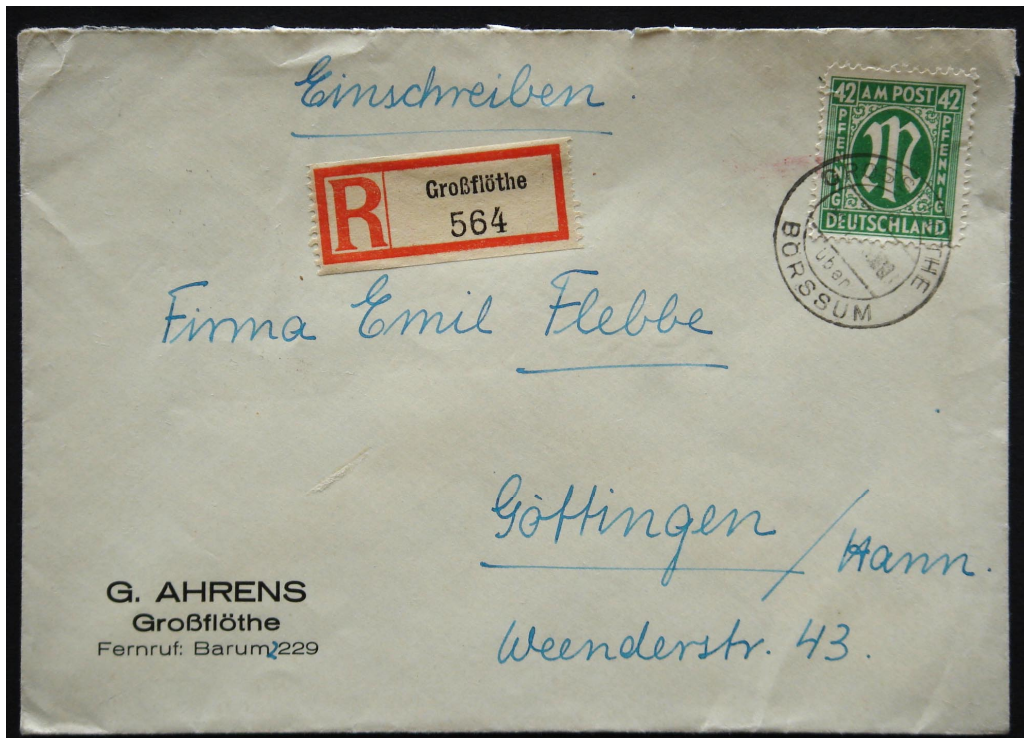 Einschreiben.
42 AM POST 42
PFENNIG
M
PFENNIG
DEUTSCHLAND
R
Großflöthe
564
über
BÖRSSUM
Firma Emil Flebbe
Göttingen / Hann.
Weenderstr. 43.
G. AHRENS
Großflöthe
Fernruf: Barum 229